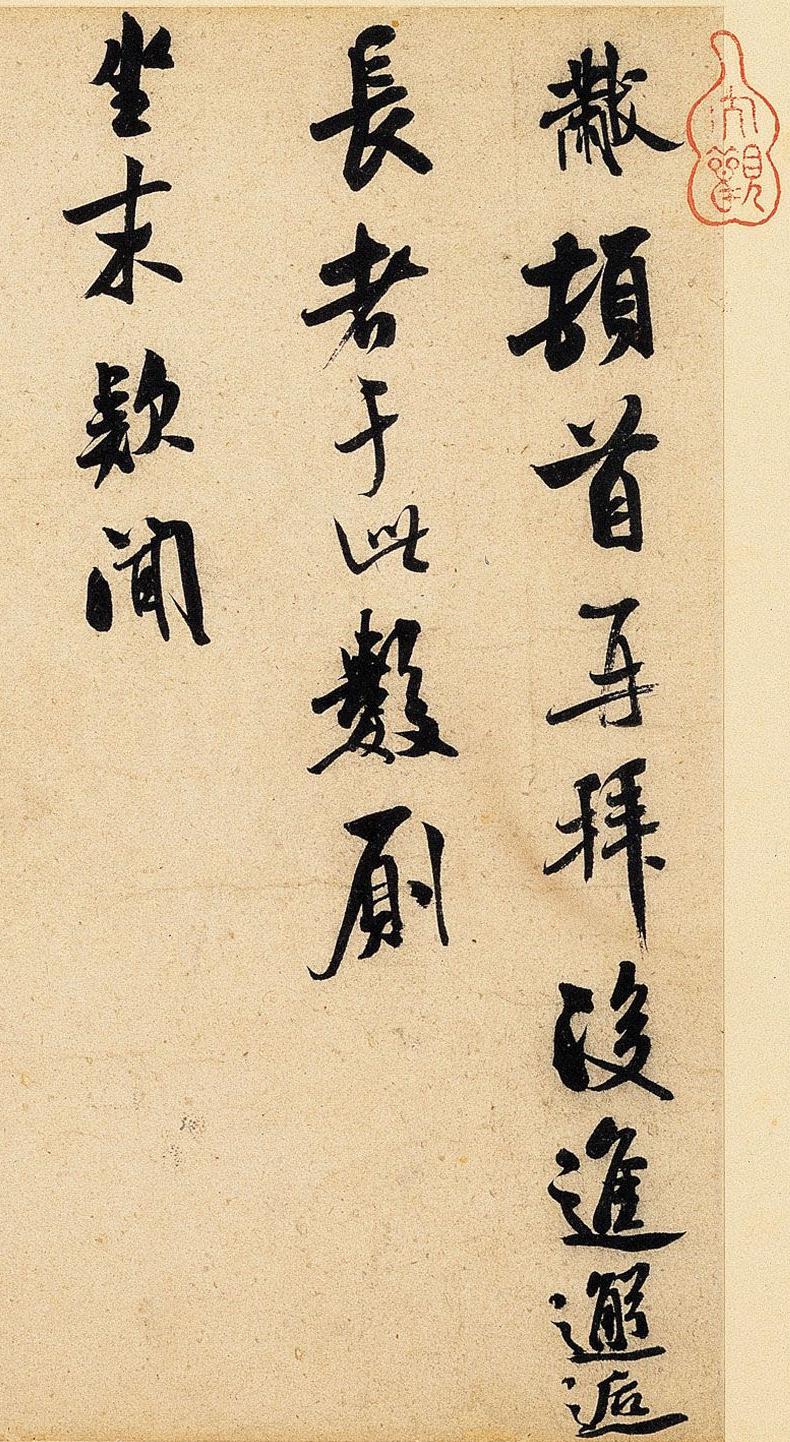 黻頓首再拜後進邂逅
長者于此數厠
坐末欵聞
觀